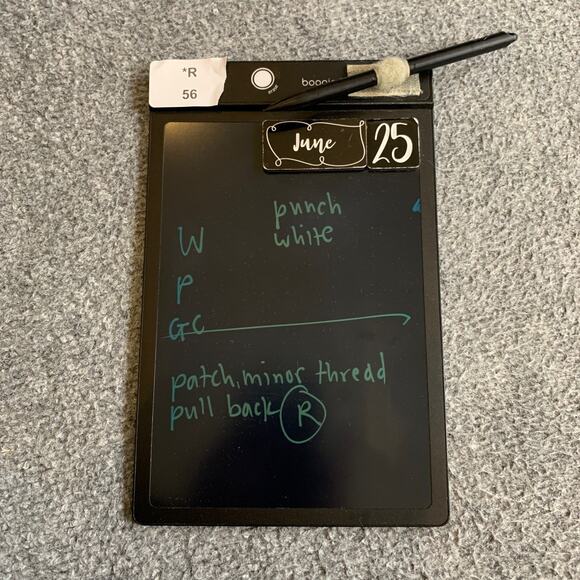 *R
56
erase
June 25
punch
white
W
P
GC
patch, minor thread
pull back R